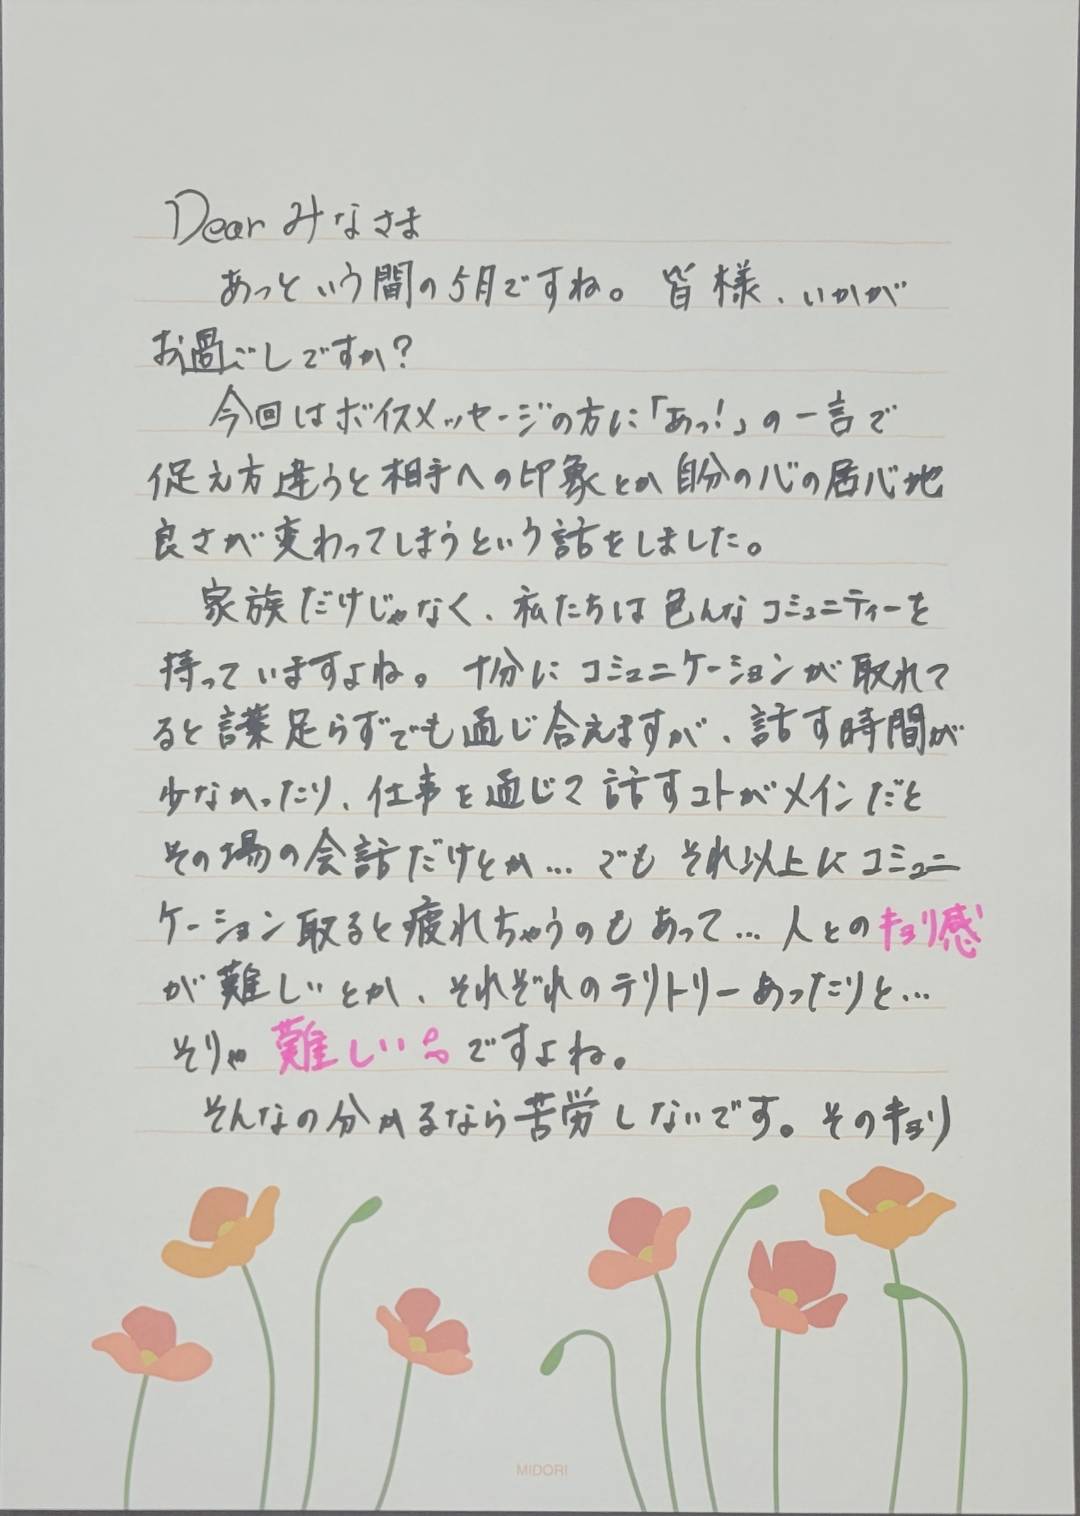 Dear みなさま
あっという間の5月ですね。皆様、いかがが
お過ごしですか?
今回はボイスメッセージの方に「あっ!」の一言で
促え方違うと相手への印象とか自分の心の居心地
良さが変わってしまうという話をしました。
家族だけじゃなく、私たちは色んなコミュニティーを
持っていますよね。十分にコミュニケーションが取れて
ると言葉足らずでも通じ合えますが、話す時間が
少なかったり、仕事を通じて話すコトがメインだと
その場の会話だけとか…でもそれ以上にコミュニ
ケーション取ると疲れちゃうのもあって…人とのキョリ感
が難しいとか、それぞれのテリトリーあったりと…
そりゃ難しいですよね。
そんなの分かるなら苦労しないです。そのキョリ
MIDORI